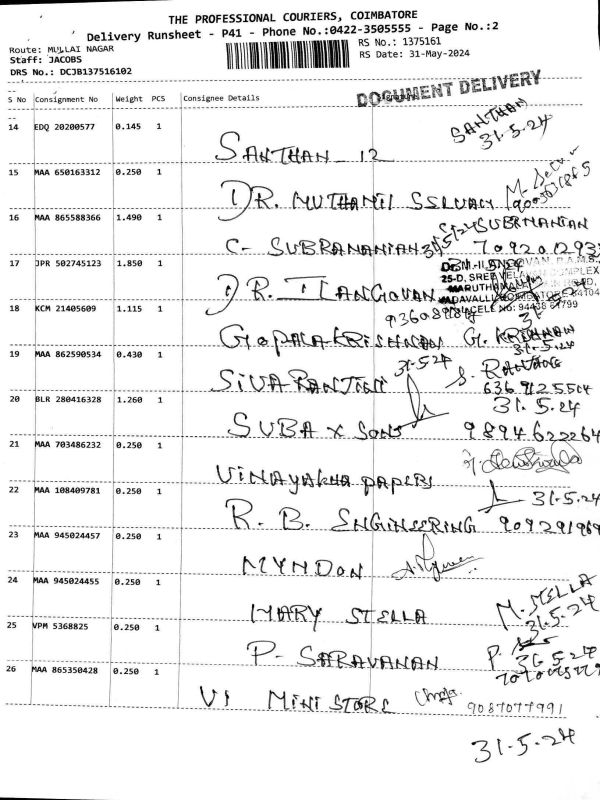 THE PROFESSIONAL COURIERS, COIMBATORE
Delivery Runsheet - P41 - Phone No.:0422-3505555 - Page No.:2
Route: MULLAI NAGAR
RS No.: 1375161
Staff: JACOBS
RS Date: 31-May-2024
DRS No.: DCJB137516102
DOCUMENT DELIVERY
S No Consignment No Weight PCS Consignee Details
14 EDQ 20200577 0.145 1 SANTHAN - 12 SANTHAN 31.5.24
15 MAA 650163312 0.250 1 DR. MUTHAMIL SSLVAN
16 MAA 865588366 1.490 1 C- SUBRAMANIAN 31/5/24 SUBRMANIAN
17 JPR 502745123 1.850 1 DR. ILANGOVAN
18 KCM 21405609 1.115 1 GOPALAKRISHNAN G. KRISHNAN
31.5.24
19 MAA 862590534 0.430 1 SIVARANJINI 31.5.24
6369125504
20 BLR 280416328 1.260 1 SUBA & SONS 31.5.24
9894622264
21 MAA 703486232 0.250 1 VINAYAKHA PAPERS
22 MAA 108409781 0.250 1 R. B. ENGINEERING 31-5.24
23 MAA 945024457 0.250 1 MYNDON
24 MAA 945024455 0.250 1 MARY STELLA M. STELLA
31.5.24
25 VPM 5368825 0.250 1 P- SARAVANAN P.
31.5.24
26 MAA 865350428 0.250 1 VI MINI STORE 9087077991
31.5.24